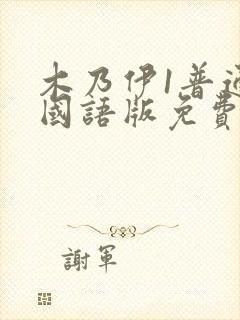 木乃伊1普通
國語版免費
謝軍